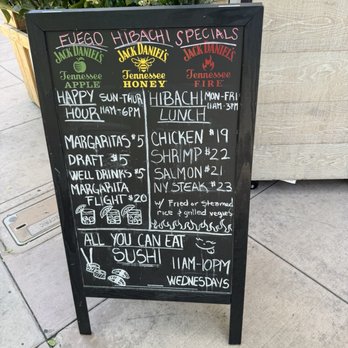 FUEGO HIBACHI SPECIALS
JACK DANIEL'S
Tennessee
APPLE
JACK DANIEL'S
Tennessee
HONEY
JACK DANIEL'S
Tennessee
FIRE
HAPPY HOUR SUN-THUR 11AM-6PM
MARGARITAS $5
DRAFT $5
WELL DRINKS $5
MARGARITA
FLIGHT $20
HIBACHI LUNCH MON-FRI 11AM-3PM
CHICKEN $19
SHRIMP $22
SALMON $21
NY STEAK $23
w/ Fried or steamed
rice & grilled veggies
ALL YOU CAN EAT
SUSHI
11AM-10PM
WEDNESDAYS